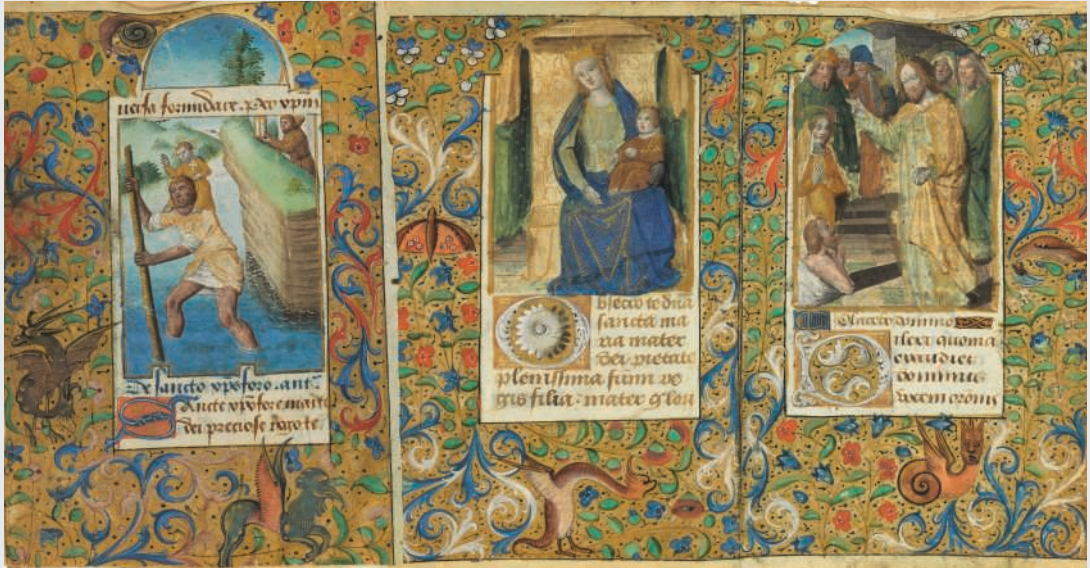 uersa formidare. Per xpm
De sancto xpoforo. ant.
Sancte xpofore martir
dei preciose rogo te
Obsecro te dña
sancta ma
ria mater
dei pietate
plenissima sum̃ re
gis filia: mater glori
Placebo domino
Dilexi quoniam
exaudiet
dominus
vocem oronis